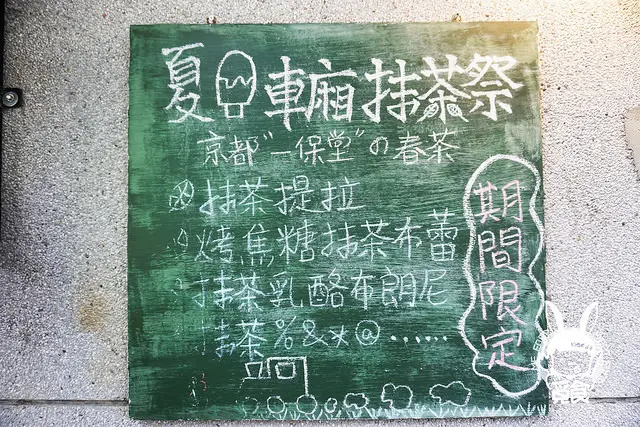 夏日車廂抹茶祭
京都"一保堂"の春茶
抹茶提拉
烤焦糖抹茶布蕾
抹茶乳酪布朗尼
抹茶%&*@......
期間限定